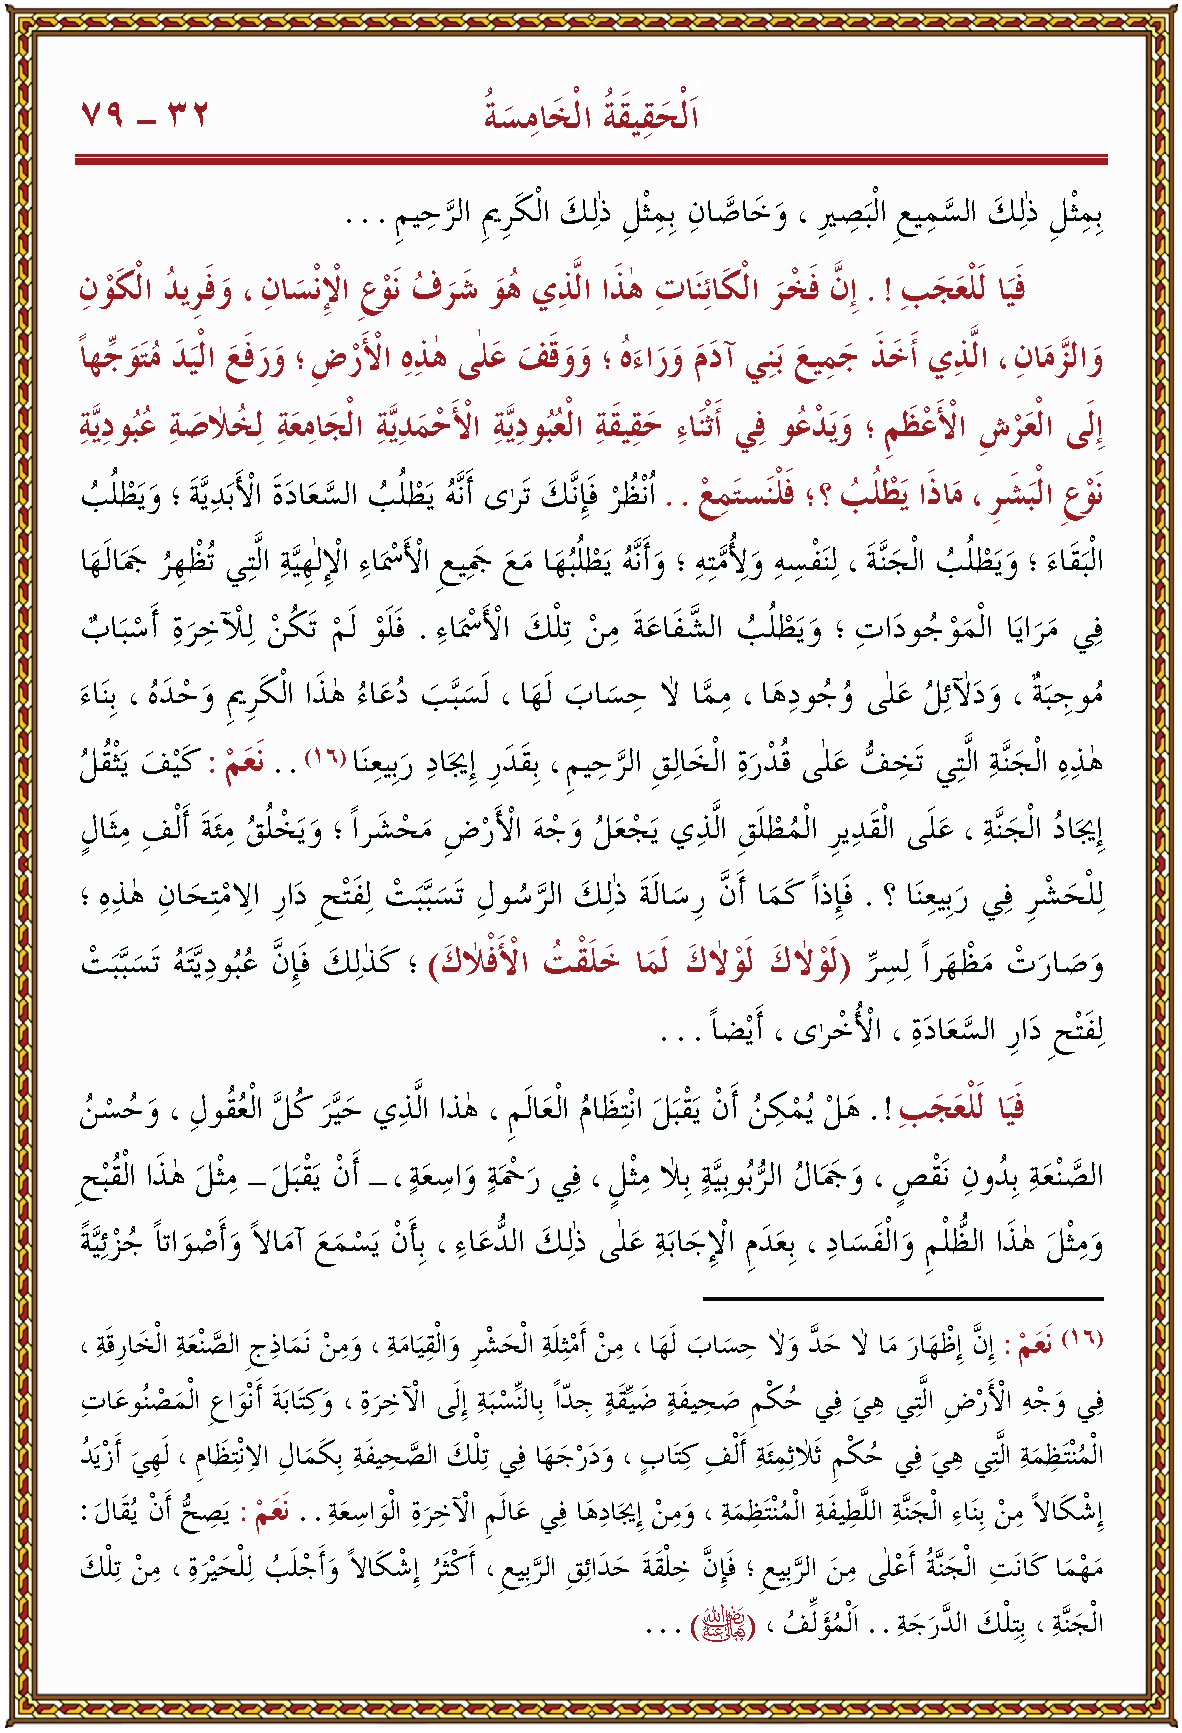 اَلْحَقِيقَةُ الْخَامِسَةُ ٣٢ – ٧٩
بِمِثْلِ ذٰلِكَ السَّمِيعِ الْبَصِيرِ ، وَخَاصَّانِ بِمِثْلِ ذٰلِكَ الْكَرِيمِ الرَّحِيمِ . . .
فَيَا لَلْعَجَبِ ! . إِنَّ فَخْرَ الْكَائِنَاتِ هٰذَا الَّذِي هُوَ شَرَفُ نَوْعِ الْإِنْسَانِ ، وَفَرِيدُ الْكَوْنِ
وَالزَّمَانِ ، الَّذِي أَخَذَ جَمِيعَ بَنِي آدَمَ وَرَاءَهُ ؛ وَوَقَفَ عَلٰى هٰذِهِ الْأَرْضِ ؛ وَرَفَعَ الْيَدَ مُتَوَجِّهاً
إِلَى الْعَرْشِ الْأَعْظَمِ ؛ وَيَدْعُو فِي أَثْنَاءِ حَقِيقَةِ الْعُبُودِيَّةِ الْأَحْمَدِيَّةِ الْجَامِعَةِ لِخُلَاصَةِ عُبُودِيَّةِ
نَوْعِ الْبَشَرِ ، مَاذَا يَطْلُبُ ؟؛ فَلْنَسْتَمِعْ . . اُنْظُرْ فَإِنَّكَ تَرٰى أَنَّهُ يَطْلُبُ السَّعَادَةَ الْأَبَدِيَّةَ ؛ وَيَطْلُبُ
الْبَقَاءَ ؛ وَيَطْلُبُ الْجَنَّةَ ، لِنَفْسِهِ وَلِأُمَّتِهِ ؛ وَأَنَّهُ يَطْلُبُهَا مَعَ جَمِيعِ الْأَسْمَاءِ الْإِلٰهِيَّةِ الَّتِي تُظْهِرُ جَمَالَهَا
فِي مَرَايَا الْمَوْجُودَاتِ ؛ وَيَطْلُبُ الشَّفَاعَةَ مِنْ تِلْكَ الْأَسْمَاءِ . فَلَوْ لَمْ تَكُنْ لِلْآخِرَةِ أَسْبَابٌ
مُوجِبَةٌ ، وَدَلَائِلُ عَلٰى وُجُودِهَا ، مِمَّا لَا حِسَابَ لَهَا ، لَسَبَّبَ دُعَاءُ هٰذَا الْكَرِيمِ وَحْدَهُ ، بِنَاءَ
هٰذِهِ الْجَنَّةِ الَّتِي تَخِفُّ عَلٰى قُدْرَةِ الْخَالِقِ الرَّحِيمِ ، بِقَدَرِ إِيجَادِ رَبِيعِنَا (١٦) . . نَعَمْ : كَيْفَ يَثْقُلُ
إِيجَادُ الْجَنَّةِ ، عَلَى الْقَدِيرِ الْمُطْلَقِ الَّذِي يَجْعَلُ وَجْهَ الْأَرْضِ مَحْشَراً ؛ وَيَخْلُقُ مِئَةَ أَلْفِ مِثَالٍ
لِلْحَشْرِ فِي رَبِيعِنَا ؟ . فَإِذاً كَمَا أَنَّ رِسَالَةَ ذٰلِكَ الرَّسُولِ تَسَبَّبَتْ لِفَتْحِ دَارِ الِامْتِحَانِ هٰذِهِ ؛
وَصَارَتْ مَظْهَراً لِسِرِّ (لَوْلَاكَ لَوْلَاكَ لَمَا خَلَقْتُ الْأَفْلَاكَ) ؛ كَذٰلِكَ فَإِنَّ عُبُودِيَّتَهُ تَسَبَّبَتْ
لِفَتْحِ دَارِ السَّعَادَةِ ، الْأُخْرٰى ، أَيْضاً . . .
فَيَا لَلْعَجَبِ ! . هَلْ يُمْكِنُ أَنْ يَقْبَلَ انْتِظَامُ الْعَالَمِ ، هٰذا الَّذِي حَيَّرَ كُلَّ الْعُقُولِ ، وَحُسْنُ
الصَّنْعَةِ بِدُونِ نَقْصٍ ، وَجَمَالُ الرُّبُوبِيَّةِ بِلَا مِثْلٍ ، فِي رَحْمَةٍ وَاسِعَةٍ ، – أَنْ يَقْبَلَ – مِثْلَ هٰذَا الْقُبْحِ
وَمِثْلَ هٰذَا الظُّلْمِ وَالْفَسَادِ ، بِعَدَمِ الْإِجَابَةِ عَلٰى ذٰلِكَ الدُّعَاءِ ، بِأَنْ يَسْمَعَ آمَالاً وَأَصْوَاتاً جُزْئِيَّةً
(١٦) نَعَمْ : إِنَّ إِظْهَارَ مَا لَا حَدَّ وَلَا حِسَابَ لَهَا ، مِنْ أَمْثِلَةِ الْحَشْرِ وَالْقِيَامَةِ ، وَمِنْ نَمَاذِجِ الصَّنْعَةِ الْخَارِقَةِ ،
فِي وَجْهِ الْأَرْضِ الَّتِي هِيَ فِي حُكْمِ صَحِيفَةٍ ضَيِّقَةٍ جِدّاً بِالنِّسْبَةِ إِلَى الْآخِرَةِ ، وَكِتَابَةَ أَنْوَاعِ الْمَصْنُوعَاتِ
الْمُنْتَظِمَةِ الَّتِي هِيَ فِي حُكْمِ ثَلَاثِمِئَةِ أَلْفِ كِتَابٍ ، وَدَرْجَهَا فِي تِلْكَ الصَّحِيفَةِ بِكَمَالِ الِانْتِظَامِ ، لَهِيَ أَزْيَدُ
إِشْكَالاً مِنْ بِنَاءِ الْجَنَّةِ اللَّطِيفَةِ الْمُنْتَظِمَةِ ، وَمِنْ إِيجَادِهَا فِي عَالَمِ الْآخِرَةِ الْوَاسِعَةِ . . نَعَمْ : يَصِحُّ أَنْ يُقَالَ :
مَهْمَا كَانَتِ الْجَنَّةُ أَعْلٰى مِنَ الرَّبِيعِ ؛ فَإِنَّ خِلْقَةَ حَدَائِقِ الرَّبِيعِ ، أَكْثَرُ إِشْكَالاً وَأَجْلَبُ لِلْحَيْرَةِ ، مِنْ تِلْكَ
الْجَنَّةِ ، بِتِلْكَ الدَّرَجَةِ . . اَلْمُؤَلِّفُ ، (رَضِيَ اللهُ تَعَالَى عَنْهُ) . . .